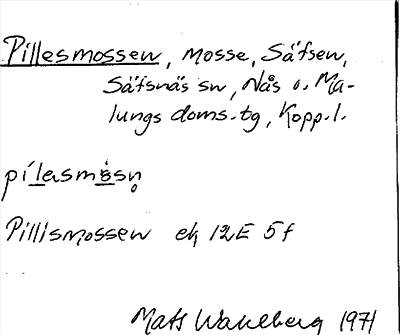 Pillesmossen, mosse, Säfsen,
Säfsnäs sn, Nås o. Ma-
lungs doms. tg, Kopp. l.
pílasmòsn̥
Pillismossen ek 12E 5f
Mats Wahlberg 1971